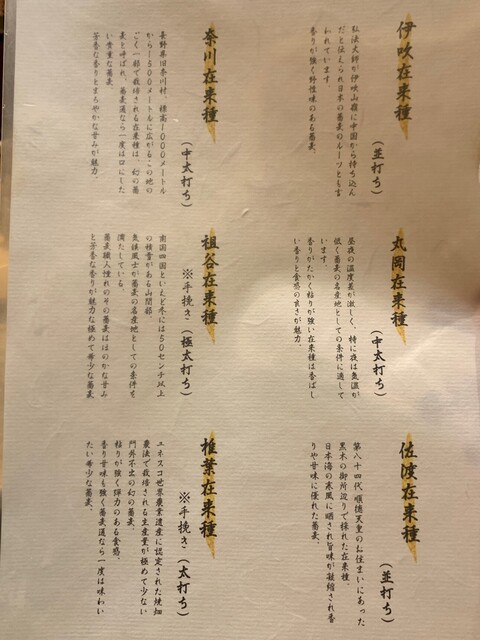 伊吹在来種
(並打ち)
弘法大師が伊吹山嶺に中国から持ち込ん
だと伝えられ日本の蕎麦のルーツとも言
われています
香りが強く野性味のある蕎麦、
奈川在来種
(中太打ち)
長野県旧奈川村 標高1000メートル
から1500メートルに広がるこの地の
ごく一部で栽培される在来種は、幻の蕎
麦と呼ばれ、蕎麦通なら一度は口にした
い貴重な蕎麦、
芳香な香りとまろやかな甘みが魅力、
丸岡在来種
(中太打ち)
昼夜の温度差が激しく、特に夜は気温が
低く蕎麦の名産地としての条件に適して
います、
香りがたかく粘りが強い在来種は香ばし
い香りと食感の良さが魅力、
祖谷在来種
※手挽き(極太打ち)
南国四国といえど冬には50センチ以上
の積雪がある山間部、
気候風土が蕎麦の名産地としての条件を
満たしている、
蕎麦職人憧れのその蕎麦はほのかな甘み
と芳香な香りが魅力な極めて希少な蕎麦
佐渡在来種
(並打ち)
第八十四代 順徳天皇のお住まいにあった
黒木の御所辺りで採れた在来種、
日本海の寒風に晒され旨味が凝縮され香
りや甘味に優れた蕎麦、
椎葉在来種
※手挽き(太打ち)
ユネスコ世界農業遺産に認定された焼畑
農法で栽培される生産量が極めて少ない
門外不出の幻の蕎麦、
粘りが強く弾力のある食感、
香り甘味も強く蕎麦通なら一度は味わい
たい希少な蕎麦、